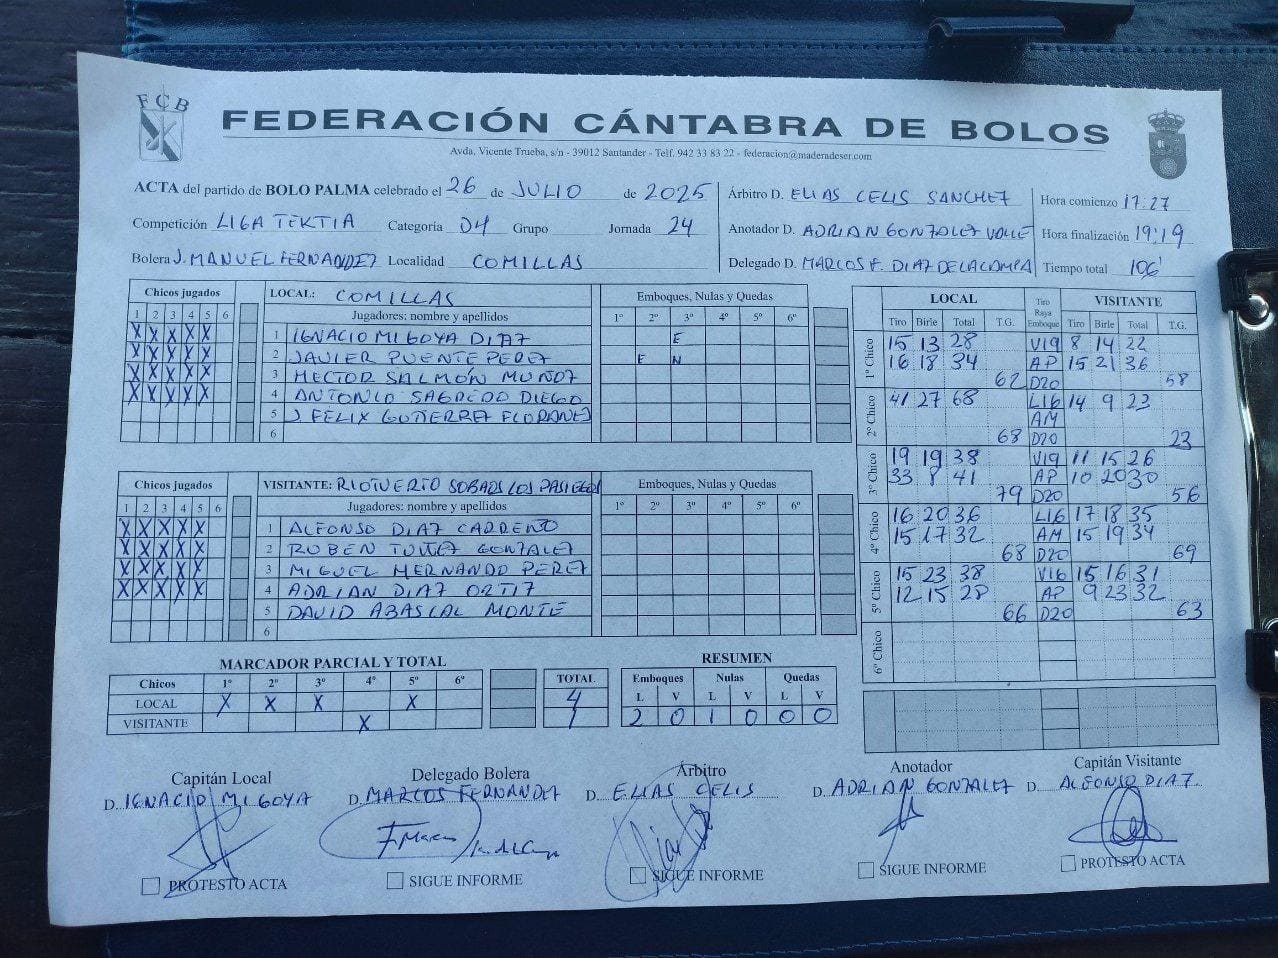 FCB
FEDERACIÓN CÁNTABRA DE BOLOS
Avda. Vicente Trueba, s/n - 39012 Santander - Telf. 942 33 83 22 - federacion@maderadeser.com
ACTA del partido de BOLO PALMA celebrado el 26 de JULIO de 2025
Competición LIGA TEKTIA Categoría D4 Grupo Jornada 24
Bolera J. MANUEL FERNANDEZ Localidad COMILLAS
Árbitro D. ELIAS CELIS SANCHEZ
Anotador D. ADRIAN GONZALEZ VALLE
Delegado D. MARCOS F. DIAZ DE LA CAMPA
Hora comienzo 17:27
Hora finalización 19:19
Tiempo total 106'
Chicos jugados LOCAL: COMILLAS Emboques, Nulas y Quedas
1 2 3 4 5 6 Jugadores: nombre y apellidos 1º 2º 3º 4º 5º 6º
X X X X X 1 IGNACIO MIGOYA DIAZ E
X X X X X 2 JAVIER PUENTE PEREZ E N
X X X X X 3 HECTOR SALMÓN MUÑOZ
X X X X X 4 ANTONIO SAGREDO DIEGO
5 J. FELIX GUTIERREZ FLORANEZ
6
Chicos jugados VISITANTE: RIOTUERTO SOBAOS LOS PASIEGOS Emboques, Nulas y Quedas
1 2 3 4 5 6 Jugadores: nombre y apellidos 1º 2º 3º 4º 5º 6º
X X X X X 1 ALFONSO DIAZ CARREÑO
X X X X X 2 RUBEN TUÑEZ GONZALEZ
X X X X X 3 MIGUEL HERNANDO PEREZ
X X X X X 4 ADRIAN DIAZ ORTIZ
5 DAVID ABASCAL MONTE
6
LOCAL Tiro Raya Emboque VISITANTE
Tiro Birle Total T.G. Tiro Birle Total T.G.
1º Chico 15 13 28 V19 8 14 22
16 18 34 AP 15 21 36
62 D20 58
2º Chico 41 27 68 L16 14 9 23
AM
68 D20 23
3º Chico 19 19 38 V19 11 15 26
33 8 41 AP 10 20 30
79 D20 56
4º Chico 16 20 36 L16 17 18 35
15 17 32 AM 15 19 34
68 D20 69
5º Chico 15 23 38 V16 15 16 31
12 15 28 AP 9 23 32
66 D20 63
6º Chico
MARCADOR PARCIAL Y TOTAL
Chicos 1º 2º 3º 4º 5º 6º TOTAL
LOCAL X X X X 4
VISITANTE X 1
RESUMEN
Emboques Nulas Quedas
L V L V L V
2 0 1 0 0 0
Capitán Local Delegado Bolera Árbitro Anotador Capitán Visitante
D. IGNACIO MIGOYA D. MARCOS FERNANDEZ D. ELIAS CELIS D. ADRIAN GONZALEZ D. ALFONSO DIAZ
PROTESTO ACTA SIGUE INFORME SIGUE INFORME SIGUE INFORME PROTESTO ACTA